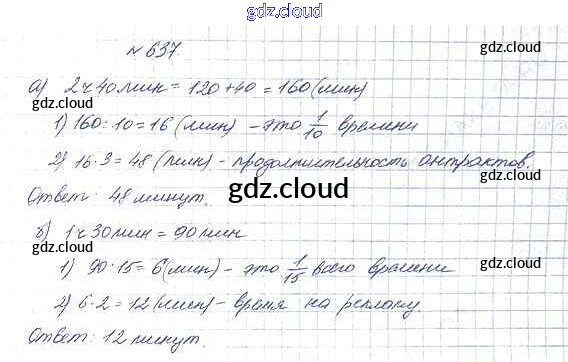 gdz.cloud
gdz.cloud
№ 637.
gdz.cloud
gdz.cloud
а) 2 ч 40 мин = 120 + 40 = 160 (мин)
gdz.cloud
1) 160 : 10 = 16 (мин) - это 1/10 времени
2) 16 · 3 = 48 (мин) - продолжительность антрактов.
Ответ: 48 минут.
gdz.cloud
б) 1 ч 30 мин = 90 мин
1) 90 · 15 = 6 (мин) - это 1/15 всего времени
2) 6 · 2 = 12 (мин) - время на рекламу.
Ответ: 12 минут.
gdz.cloud
gdz.cloud